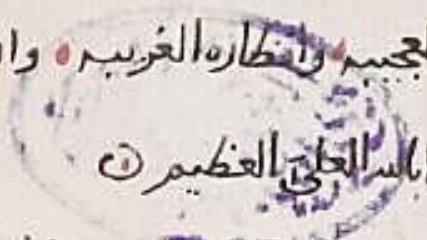 العجيبه وانظاره الغريبه وا
بالله العلي العظيم